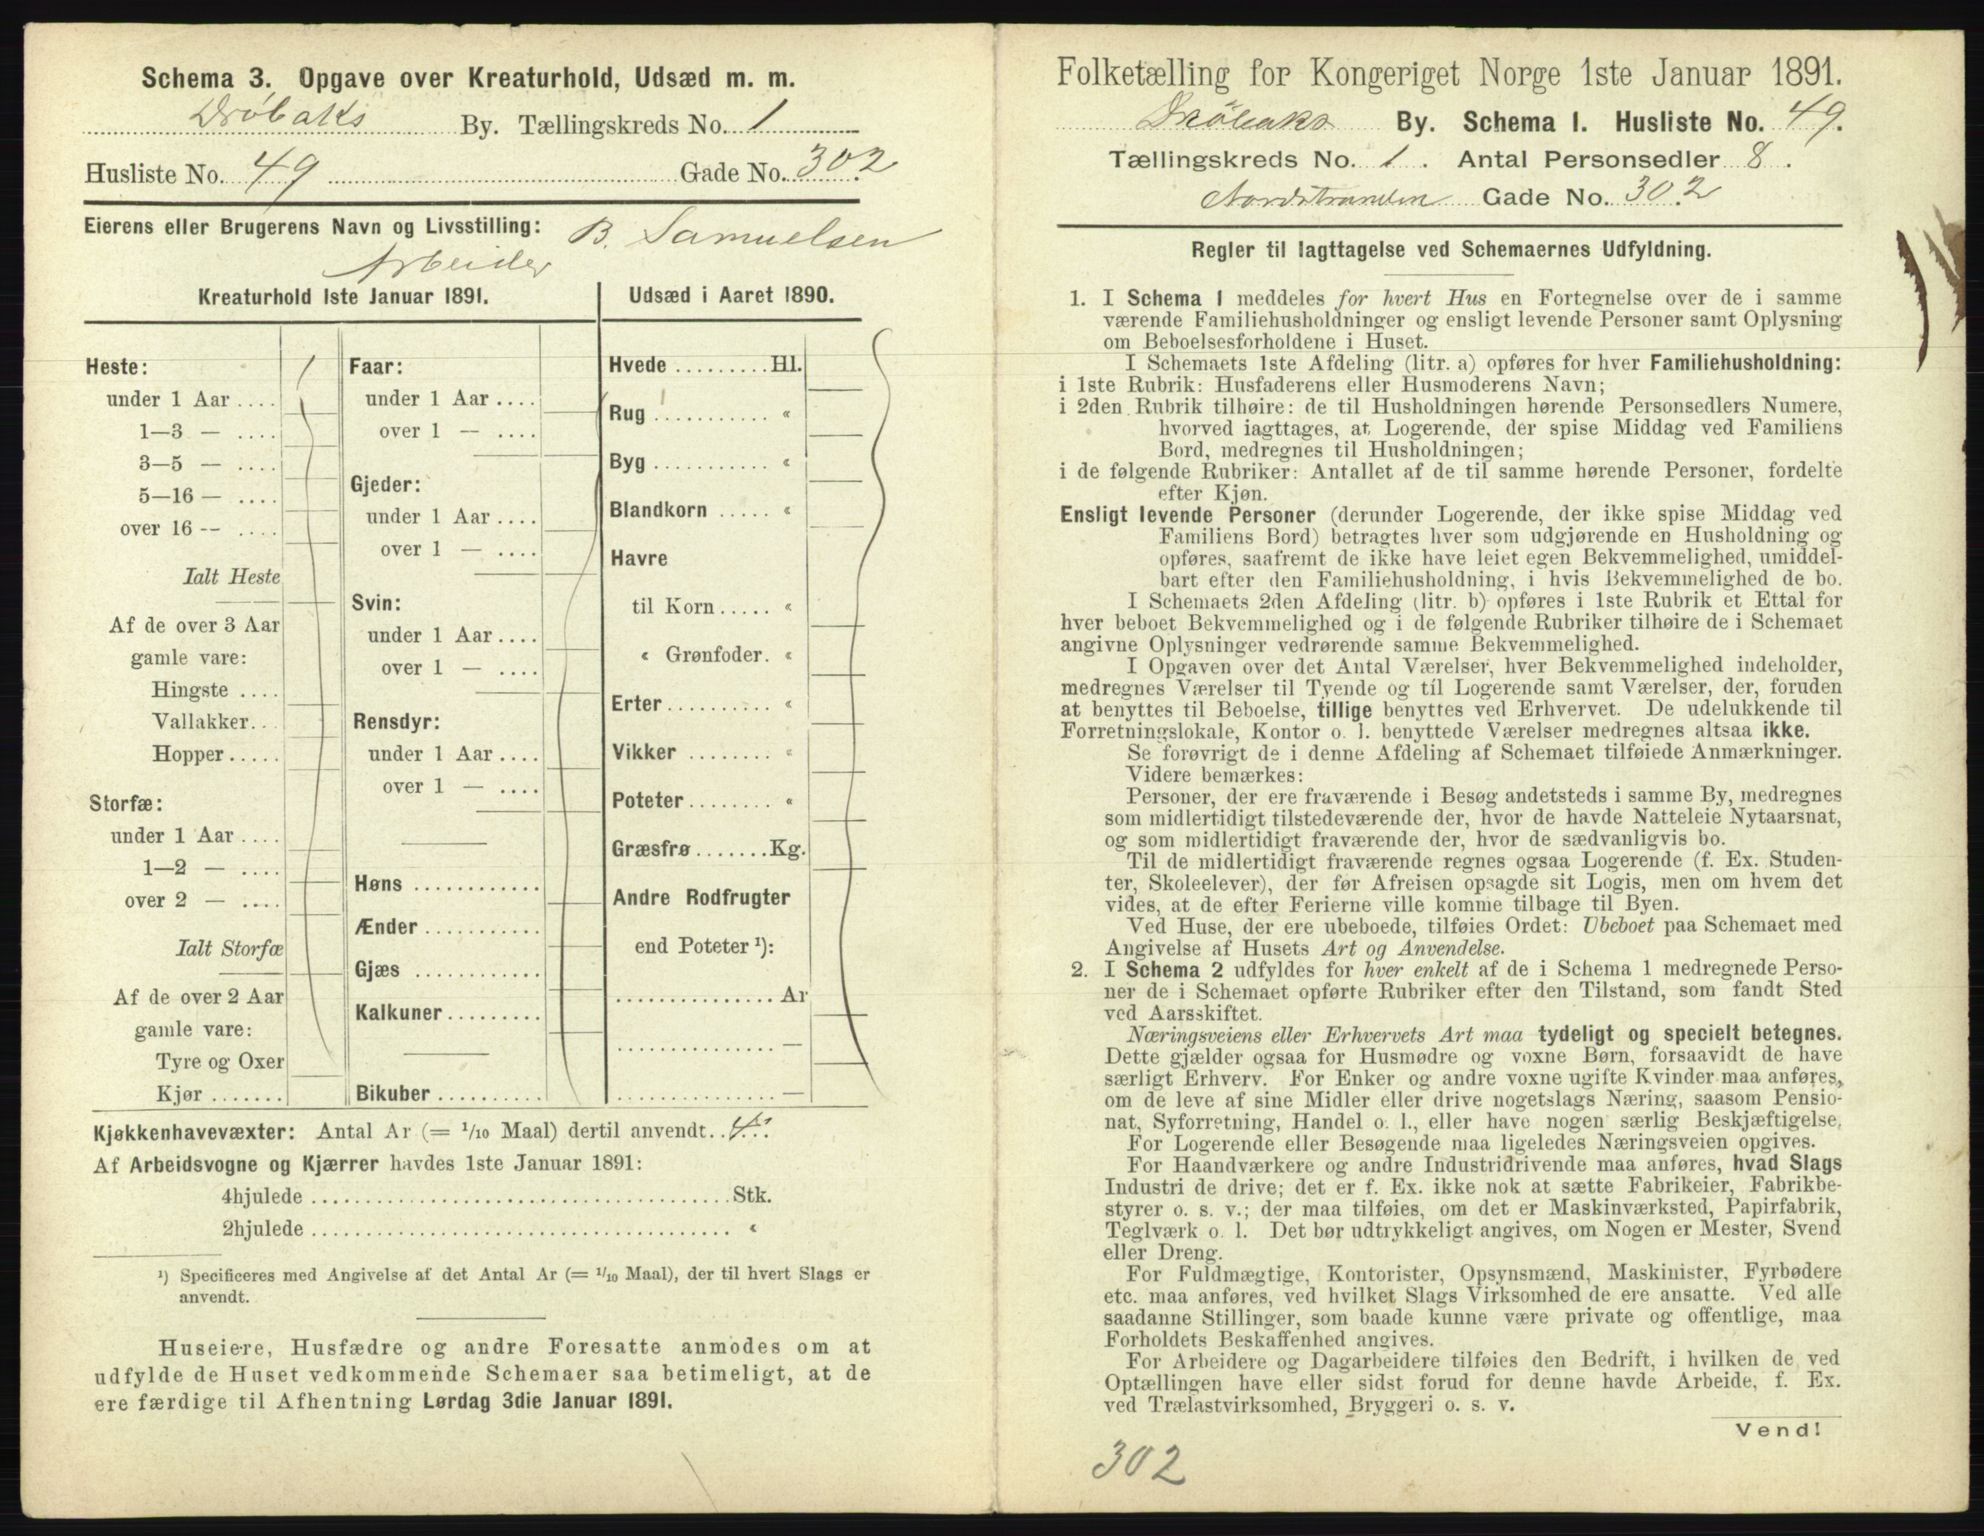 Schema 3. Opgave over Kreaturhold, Udsæd m. m.
Drøbaks By. Tællingskreds No. 1
Husliste No. 49 Gade No. 302
Eierens eller Brugerens Navn og Livsstilling: B. Samuelsen
Arbeider
Kreaturhold 1ste Januar 1891.
Heste:
under 1 Aar ....
1—3 — ....
3—5 — ....
5—16 — ....
over 16 -- ....
Ialt Heste
Af de over 3 Aar
gamle vare:
Hingste ....
Vallakker...
Hopper.....
Storfæ:
under 1 Aar ....
1—2 — ....
over 2 — ....
Ialt Storfæ
Af de over 2 Aar
gamle vare:
Tyre og Oxer
Kjør .......
Faar:
under 1 Aar ....
over 1 — ....
Gjeder:
under 1 Aar ....
over 1 — ....
Svin:
under 1 Aar ....
over 1 — ....
Rensdyr:
under 1 Aar ....
over 1 — ....
Høns ............
Ænder ...........
Gjæs ............
Kalkuner.........
Bikuber ..........
Udsæd i Aaret 1890.
Hvede .........Hl.
Rug .......... «
Byg .......... «
Blandkorn ..... «
Havre
til Korn..... «
« Grønfoder. «
Erter......... «
Vikker ........ «
Poteter........ «
Græsfrø.......Kg.
Andre Rodfrugter
end Poteter ¹):
...............Ar
...............—
...............—
Kjøkkenhavevæxter: Antal Ar (= 1/10 Maal) dertil anvendt..
Af Arbeidsvogne og Kjærrer havdes 1ste Januar 1891:
4hjulede ......................................Stk.
2hjulede ...................................... «
¹) Specificeres med Angivelse af det Antal Ar (= 1/10 Maal), der til hvert Slags er
anvendt.
Huseiere, Husfædre og andre Foresatte anmodes om at
udfylde de Huset vedkommende Schemaer saa betimeligt, at de
ere færdige til Afhentning Lørdag 3die Januar 1891.
Folketælling for Kongeriget Norge 1ste Januar 1891.
Drøbaks By. Schema 1. Husliste No. 49.
Tællingskreds No. 1. Antal Personsedler 8.
Nordstranden Gade No. 302
Regler til Iagttagelse ved Schemaernes Udfyldning.
1. I Schema 1 meddeles for hvert Hus en Fortegnelse over de i samme
værende Familiehusholdninger og ensligt levende Personer samt Oplysning
om Beboelsesforholdene i Huset.
I Schemaets 1ste Afdeling (litr. a) opføres for hver Familiehusholdning:
i 1ste Rubrik: Husfaderens eller Husmoderens Navn;
i 2den Rubrik tilhøire: de til Husholdningen hørende Personsedlers Numere,
hvorved iagttages, at Logerende, der spise Middag ved Familiens
Bord, medregnes til Husholdningen;
i de følgende Rubriker: Antallet af de til samme hørende Personer, fordelte
efter Kjøn.
Ensligt levende Personer (derunder Logerende, der ikke spise Middag ved
Familiens Bord) betragtes hver som udgjørende en Husholdning og
opføres, saafremt de ikke have leiet egen Bekvemmelighed, umiddel-
bart efter den Familiehusholdning, i hvis Bekvemmelighed de bo.
I Schemaets 2den Afdeling (litr. b) opføres i 1ste Rubrik et Ettal for
hver beboet Bekvemmelighed og i de følgende Rubriker tilhøire de i Schemaet
angivne Oplysninger vedrørende samme Bekvemmelighed.
I Opgaven over det Antal Værelser, hver Bekvemmelighed indeholder,
medregnes Værelser til Tyende og til Logerende samt Værelser, der, foruden
at benyttes til Beboelse, tillige benyttes ved Erhvervet. De udelukkende til
Forretningslokale, Kontor o. l. benyttede Værelser medregnes altsaa ikke.
Se forøvrigt de i denne Afdeling af Schemaet tilføiede Anmærkninger.
Videre bemærkes:
Personer, der ere fraværende i Besøg andetsteds i samme By, medregnes
som midlertidigt tilstedeværende der, hvor de havde Natteleie Nytaarsnat,
og som midlertidigt fraværende der, hvor de sædvanligvis bo.
Til de midlertidigt fraværende regnes ogsaa Logerende (f. Ex. Studen-
ter, Skoleelever), der før Afreisen opsagde sit Logis, men om hvem det
vides, at de efter Ferierne ville komme tilbage til Byen.
Ved Huse, der ere ubeboede, tilføies Ordet: Ubeboet paa Schemaet med
Angivelse af Husets Art og Anvendelse.
2. I Schema 2 udfyldes for hver enkelt af de i Schema 1 medregnede Perso-
ner de i Schemaet opførte Rubriker efter den Tilstand, som fandt Sted
ved Aarsskiftet.
Næringsveiens eller Erhvervets Art maa tydeligt og specielt betegnes.
Dette gjælder ogsaa for Husmødre og voxne Børn, forsaavidt de have
særligt Erhverv. For Enker og andre voxne ugifte Kvinder maa anføres,
om de leve af sine Midler eller drive nogetslags Næring, saasom Pensio-
nat, Syforretning, Handel o. l., eller have nogen særlig Beskjæftigelse.
For Logerende eller Besøgende maa ligeledes Næringsveien opgives.
For Haandværkere og andre Industridrivende maa anføres, hvad Slags
Industri de drive; det er f. Ex. ikke nok at sætte Fabrikeier, Fabrikbe-
styrer o. s. v.; der maa tilføies, om det er Maskinværksted, Papirfabrik,
Teglværk o. l. Det bør udtrykkeligt angives, om Nogen er Mester, Svend
eller Dreng.
For Fuldmægtige, Kontorister, Opsynsmænd, Maskinister, Fyrbødere
etc. maa anføres, ved hvilket Slags Virksomhed de ere ansatte. Ved alle
saadanne Stillinger, som baade kunne være private og offentlige, maa
Forholdets Beskaffenhed angives.
For Arbeidere og Dagarbeidere tilføies den Bedrift, i hvilken de ved
Optællingen have eller sidst forud for denne havde Arbeide, f. Ex.
ved Trælastvirksomhed, Bryggeri o. s. v.
Vend!
302